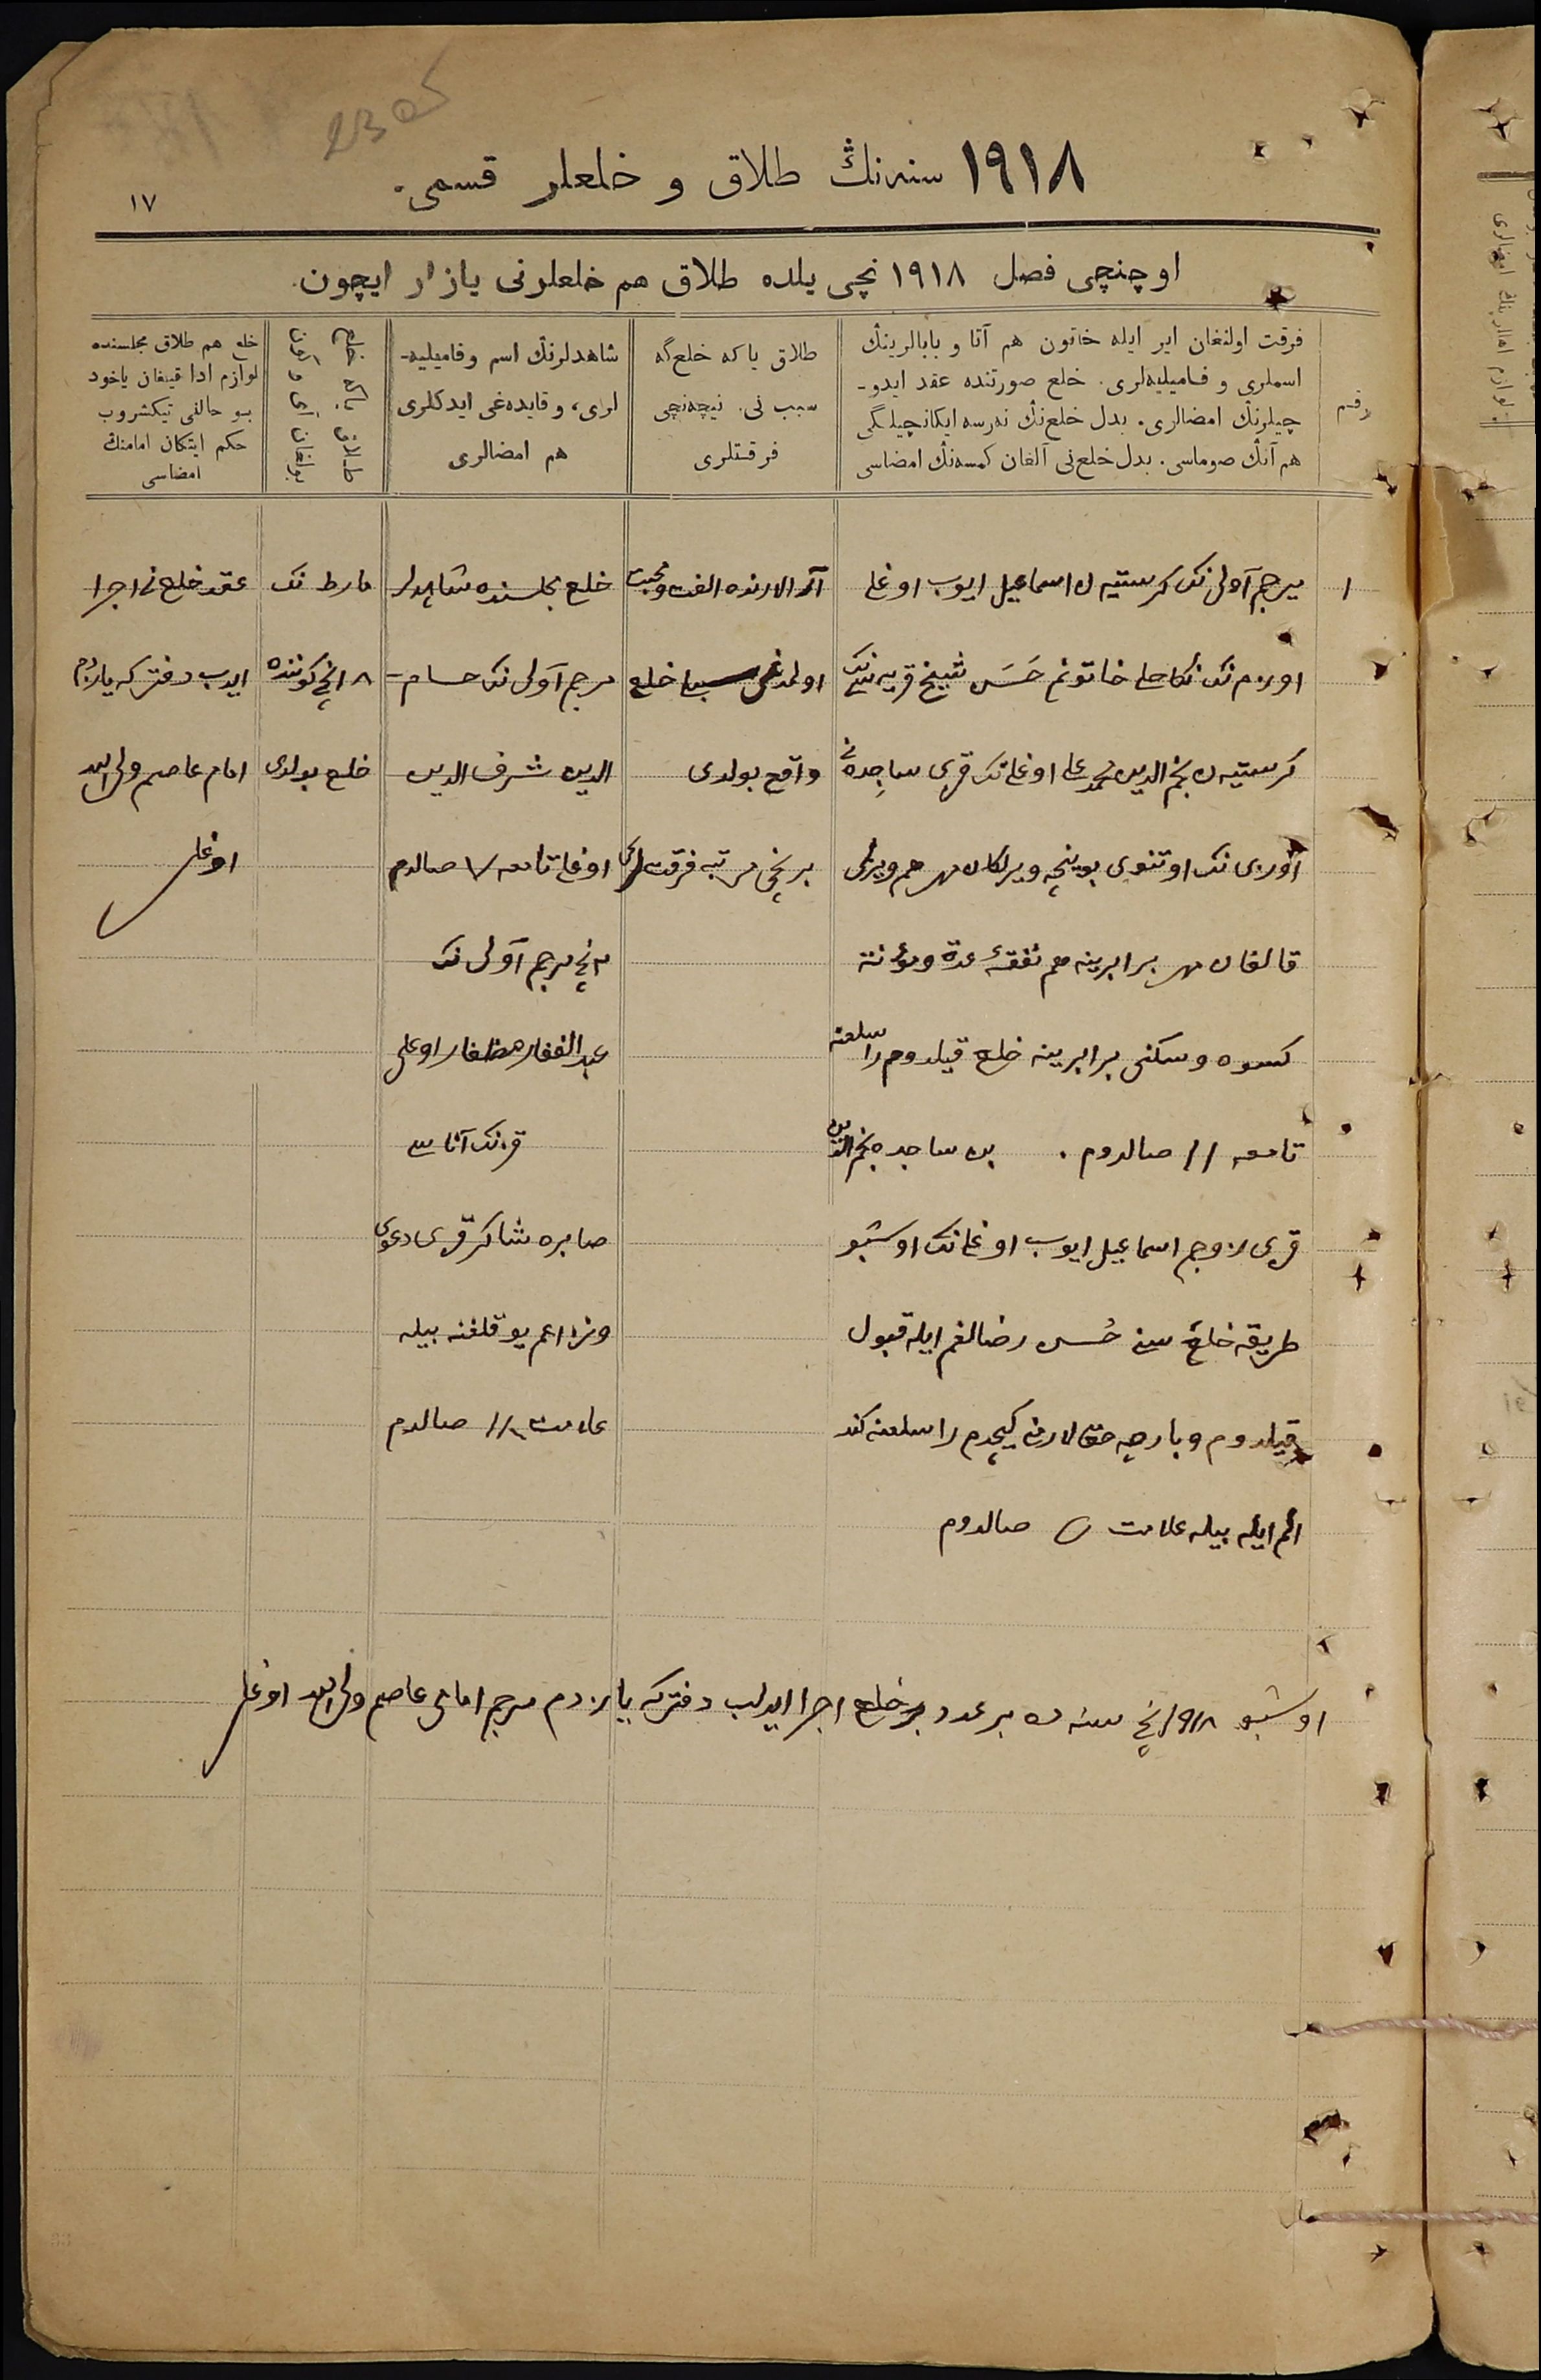 ۱۹۱۸ سنه‌نڭ طلاق و خلعلر قسمی.
۱۷
اوچنچی فصل ۱۹۱۸ نچی یلده طلاق هم خلعلرنی یازار ایچون.
رقم
فرقت اولنغان ایر ایله خاتون هم آتا و بابالرینڭ
اسملری و فامیلیه‌لری. خلع صورتنده عقد ایدو-
چیلرنڭ امضالری. بدل خلع‌نڭ نه‌رسه ایکانچیلگی
هم آنڭ صوماسی. بدل خلع‌نی آلغان کمسه‌نڭ امضاسی
طلاق یا که خلع‌گه
سبب نی. نیچه‌نچی
فرقتلری
شاهدلرنڭ اسم و فامیلیه-
لری، و قایده‌غی ایدکلری
هم امضالری
طلاق یا که خلع
بولغان آی و کون
خلع هم طلاق مجلسنده
لوازم ادا قیلغان یاخود
بو حالنی تیکشروب
حکم ایتکان امامنڭ
امضاسی
۱
مرجم آولی نک کرستیه ن اسماعیل ایوب اوغلی
اوزم نک نکاحلی خاتونم حسن شیخ قریه نک
کرستیه ن نجم الدین محمد علی اوغلی نک قزی ساجده نی
اوزی نک اوتنوی بوینچه ویرلکان مهر هم ویرلی
قالغان مهر برابرینه هم نفقهٔ عدة و مؤنة
کسوه و سکنی برابرینه خلع قیلدوم
تامعه // صالدوم . بن ساجده نجم الدین
قزی زوجم اسماعیل ایوب اوغلی نک اوشبو
طریقه خلع سین حسن رضالغم ایله قبول
قیلدوم و بارچه حق لارنی کیچدم
ایله بیله علامت صالدوم
آرالارنده الفت و محبت
اولمدغی سببلی خلع
واقع بولدی
برنچی مرتبه فرقت لری
خلع مجلسنده شاهدلر
مرجم آولی نک حسام-
الدین شرف الدین
اوغلی تامعه ۷ صالدم
۲ نچی مرجم آولی نک
عبد الغفار اوغلی
قزنک آناسی
صابره شاکر قزی دعوی
ونزاعم یوقلغنه بیله
علامت // صالدم
مارط نک
۱۸ نچی کوننده
خلع بولدی
عقد خلع نی اجرا
ایدب دفترکه یازدم
امام عاصم ولی الله
اوغلی
اوشبو ۱۹۱۸ نچی سنه ده بر عدد خلع اجرا ایدلب دفترکه یازدم مرجم امامی عاصم ولی الله اوغلی